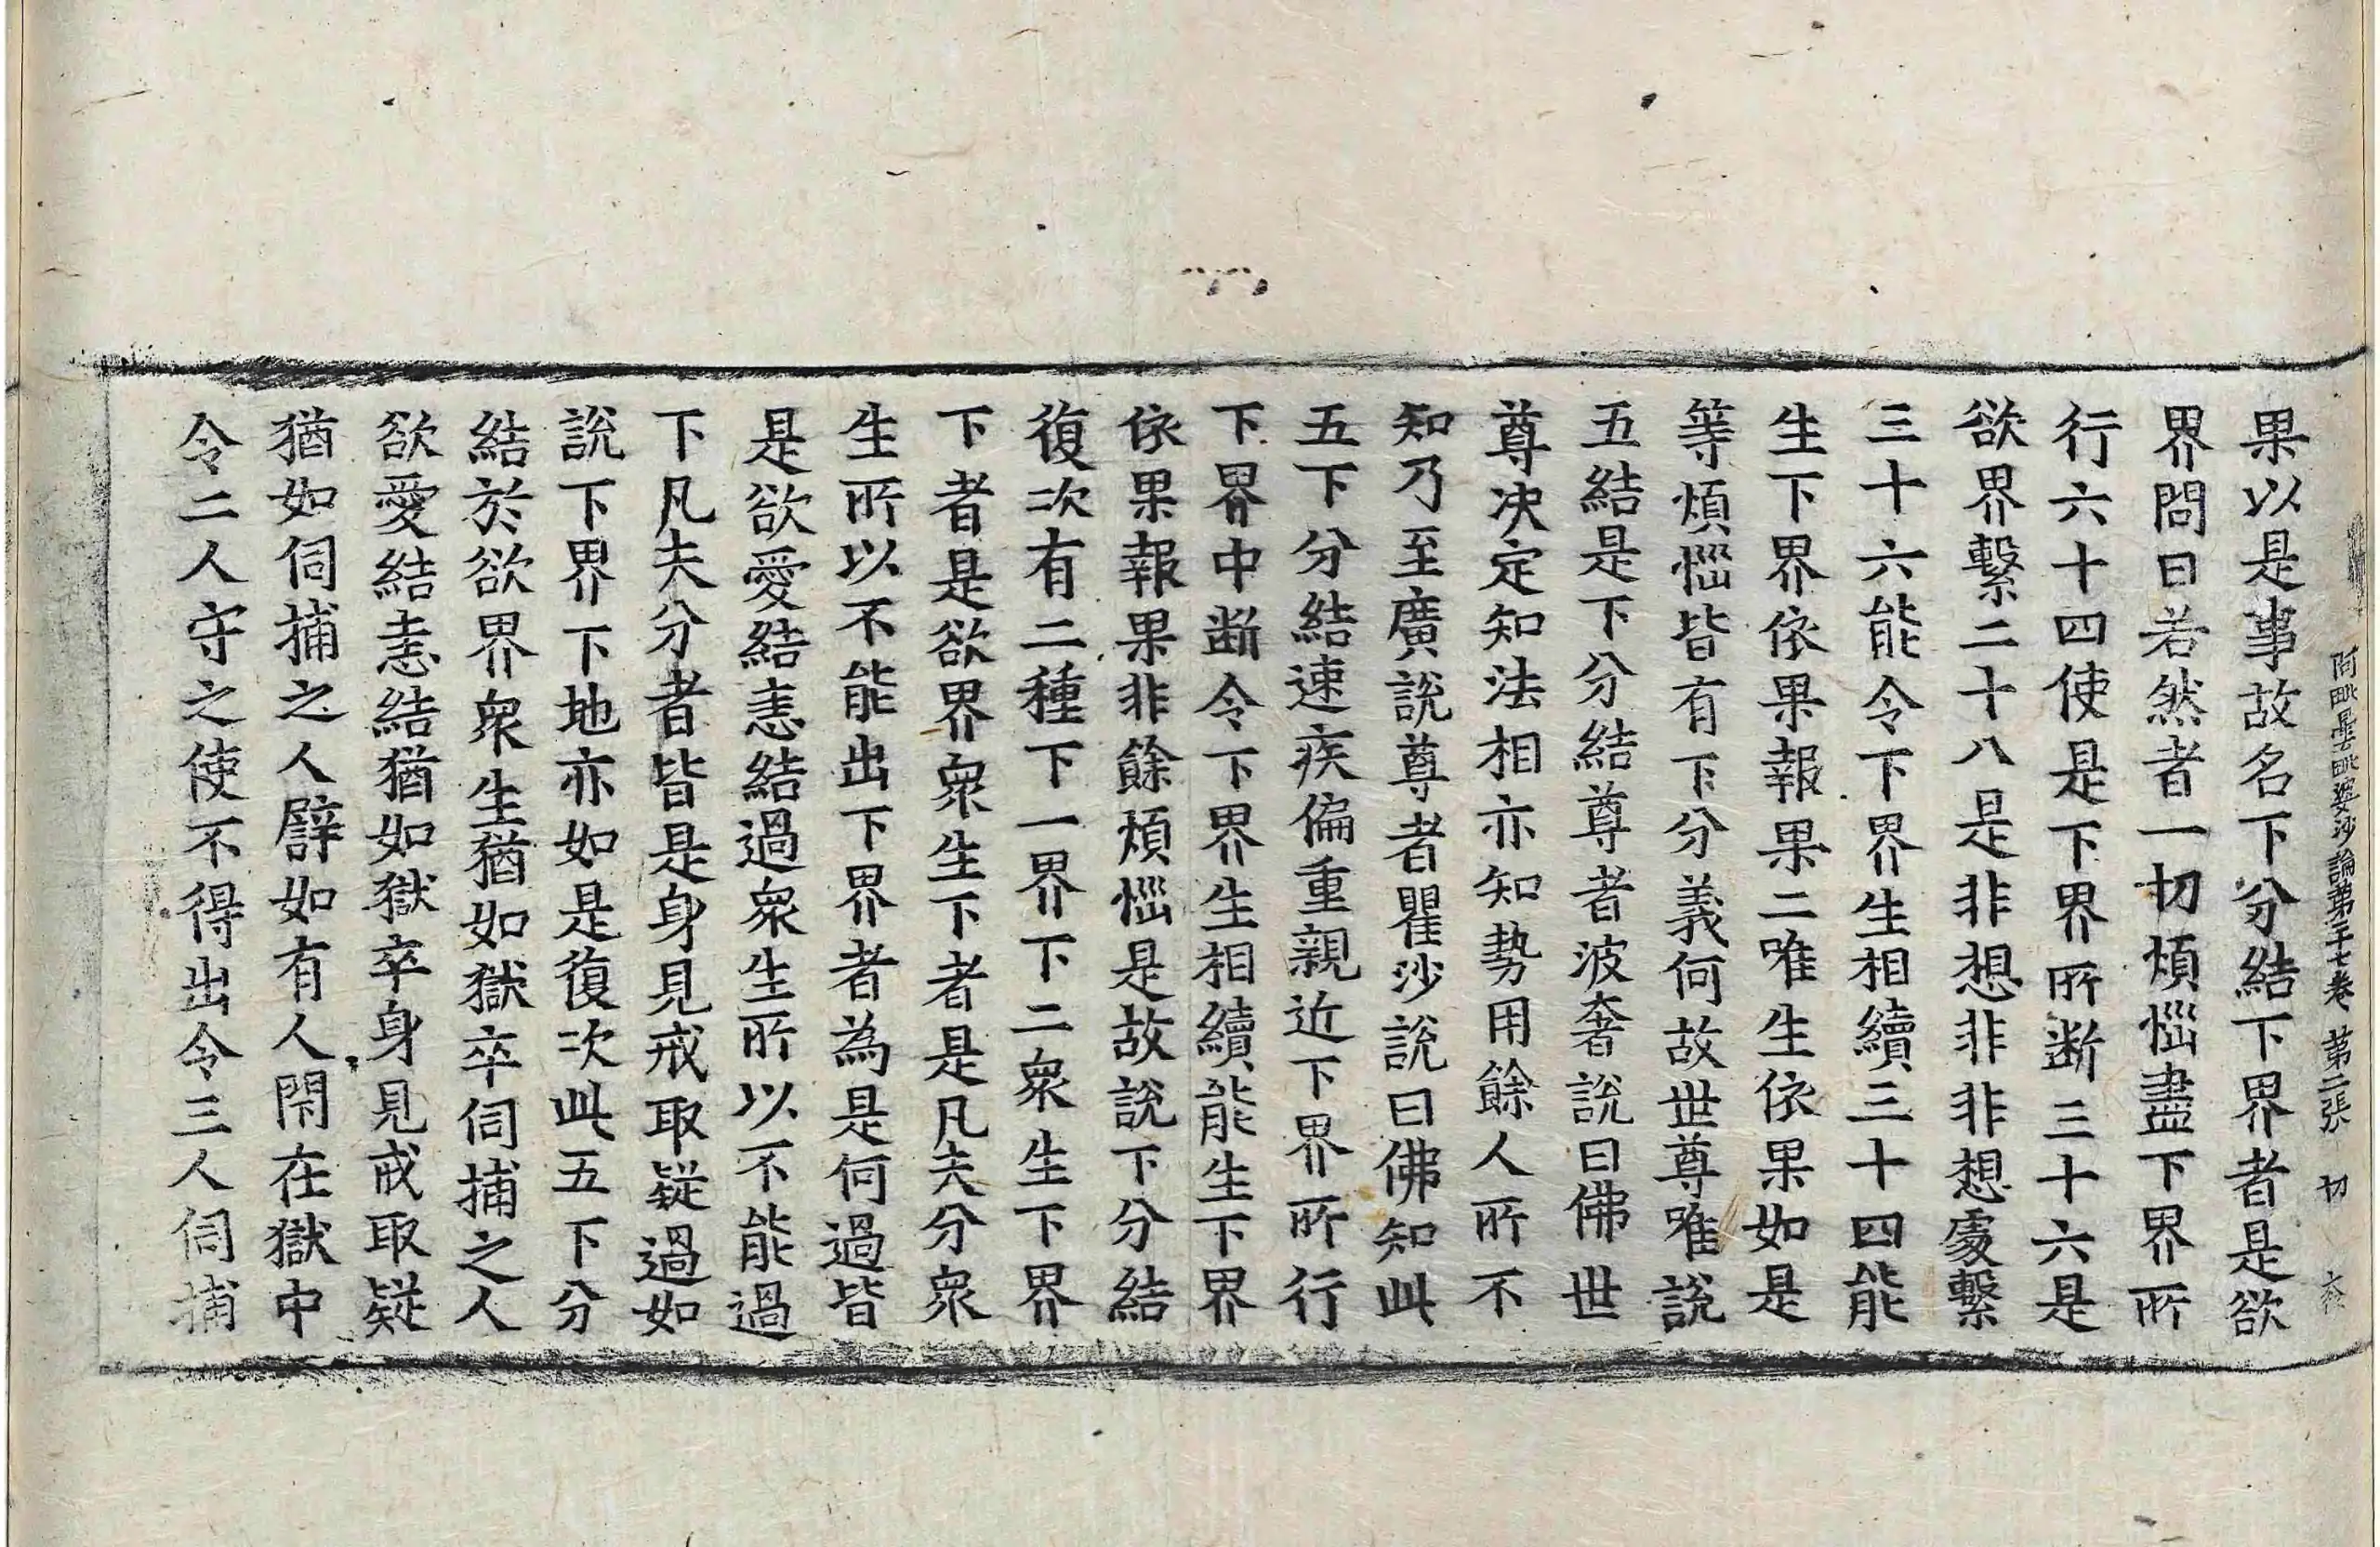 阿毗曇毗婆沙論第二十七卷 第二張 切
果以是事故名下分結下界者是欲
界問曰若然者一切煩惱盡下界所
行六十四使是下界所断三十六是
欲界繫二十八是非想非非想處繫
三十六能令下界生相續三十四能
生下界依果報果二唯生依果如是
等煩惱皆有下分義何故世尊唯說
五結是下分結尊者波奢說曰佛世
尊决定知法相亦知勢用餘人所不
知乃至廣說尊者瞿沙說曰佛知此
五下分結速疾偏重親近下界所行
下界中断令下界生相續能生下界
依果報果非餘煩惱是故說下分結
復次有二種下一界下二衆生下界
下者是欲界衆生下者是凡夫分衆
生所以不能出下界者為是何過皆
是欲愛結恚結過衆生所以不能過
下凡夫分者皆是身見戒取疑過如
說下界下地亦如是復次此五下分
結於欲界衆生猶如獄卒伺捕之人
欲愛結恚結猶如獄卒身見戒取疑
猶如伺捕之人譬如有人閇在獄中
令二人守之使不得出令三人伺捕